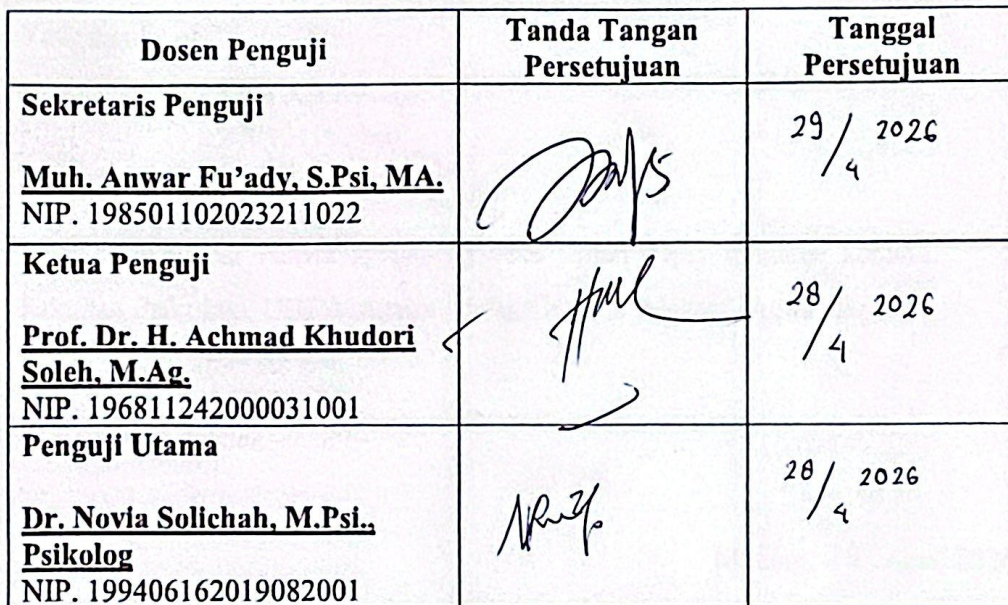 Dosen Penguji
Tanda Tangan
Persetujuan
Tanggal
Persetujuan
Sekretaris Penguji
Muh. Anwar Fu'ady, S.Psi, MA.
NIP. 198501102023211022
29/4 2026
Ketua Penguji
Prof. Dr. H. Achmad Khudori
Soleh, M.Ag.
NIP. 196811242000031001
28/4 2026
Penguji Utama
Dr. Novia Solichah, M.Psi.,
Psikolog
NIP. 199406162019082001
28/4 2026